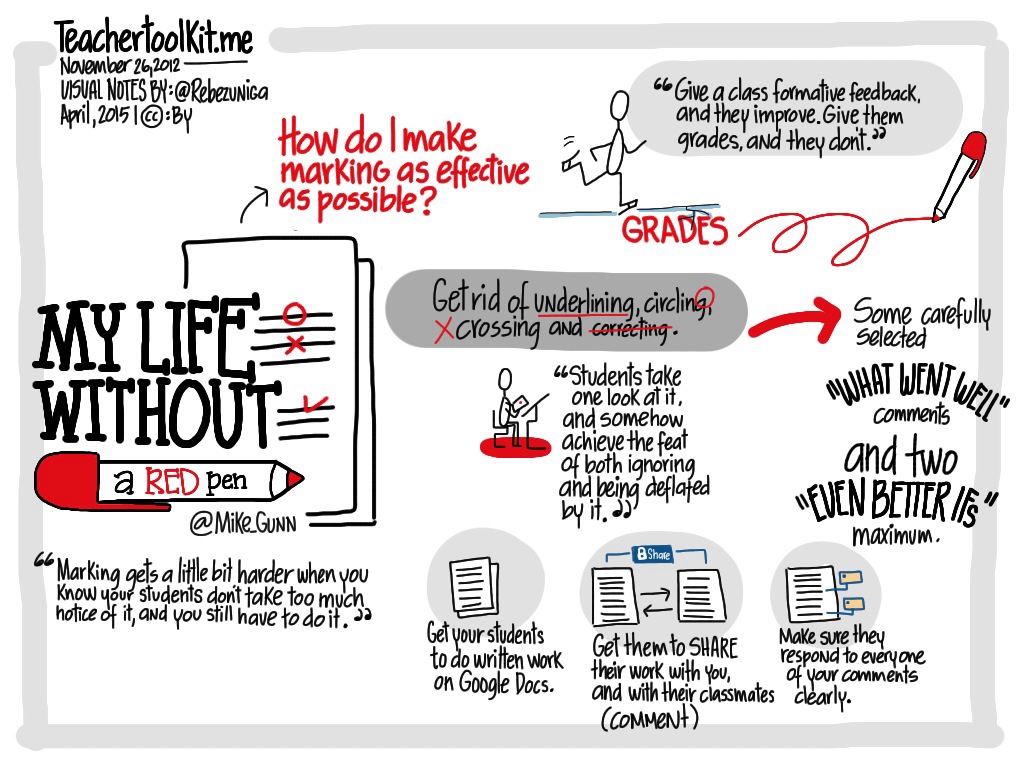 TeachertoolKit.me
November 26,2012
VISUAL NOTES BY: @Rebezuniga
April, 2015 | cc : By
How do I make
marking as effective
as possible?
“Give a class formative feedback,
and they improve. Give them
grades, and they don't.”
GRADES
MY LIFE
WITHOUT
a RED pen
@Mike_Gunn
“Marking gets a little bit harder when you
know your students don't take too much
notice of it, and you still have to do it.”
Get rid of underlining, circling,
X crossing and correcting.
“Students take
one look at it,
and somehow
achieve the feat
of both ignoring
and being deflated
by it.”
Some carefully
selected
"WHAT WENT WELL"
comments
and two
"EVEN BETTER IFS"
maximum.
Get your students
to do written work
on Google Docs.
Share
Get them to SHARE
their work with you,
and with their classmates
(COMMENT)
Make sure they
respond to everyone
of your comments
clearly.